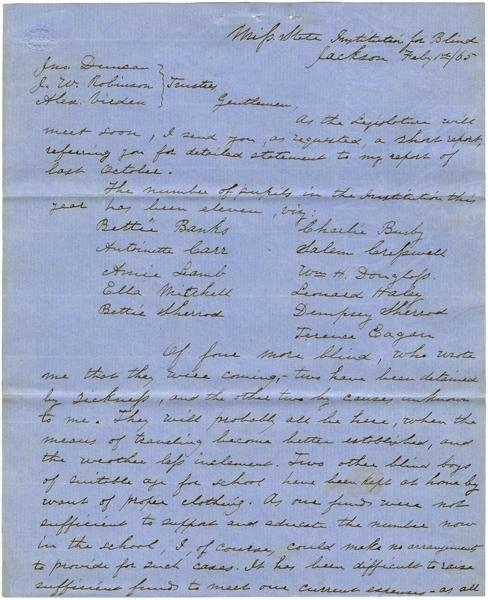 Miss. State Institution for Blind
Jackson Feby 1st/65
Jno. Duncan
J. W. Robinson } Trustees
Alex. Virden
Gentlemen,
As the Legislature will
meet soon, I send you, as requested, a short report,
referring you for detailed statement to my report of
last October.
The number of pupils in the Institution this
year has been eleven, viz:
Bettie Banks Charlie Busby
Antoinette Carr Salem Cresswell
Amie Lamb Wm H. Douglass.
Ella Mitchell Leonard Haley
Bettie Sherrod Dempsey Sherrod
Terence Eagan
Of four more blind, who wrote
me that they were coming,- two have been detained
by sickness, and the other two by causes unknown
to me. They will probably all be here, when the
means of traveling become better established, and
the weather less inclement. Two other blind boys
of suitable age for school have been kept at home by
want of proper clothing. As our funds were not
sufficient to support and educate the number now
in the school, I, of course, could make no arrangement
to provide for such cases. It has been difficult to raise
sufficient funds to meet our current expenses - as all